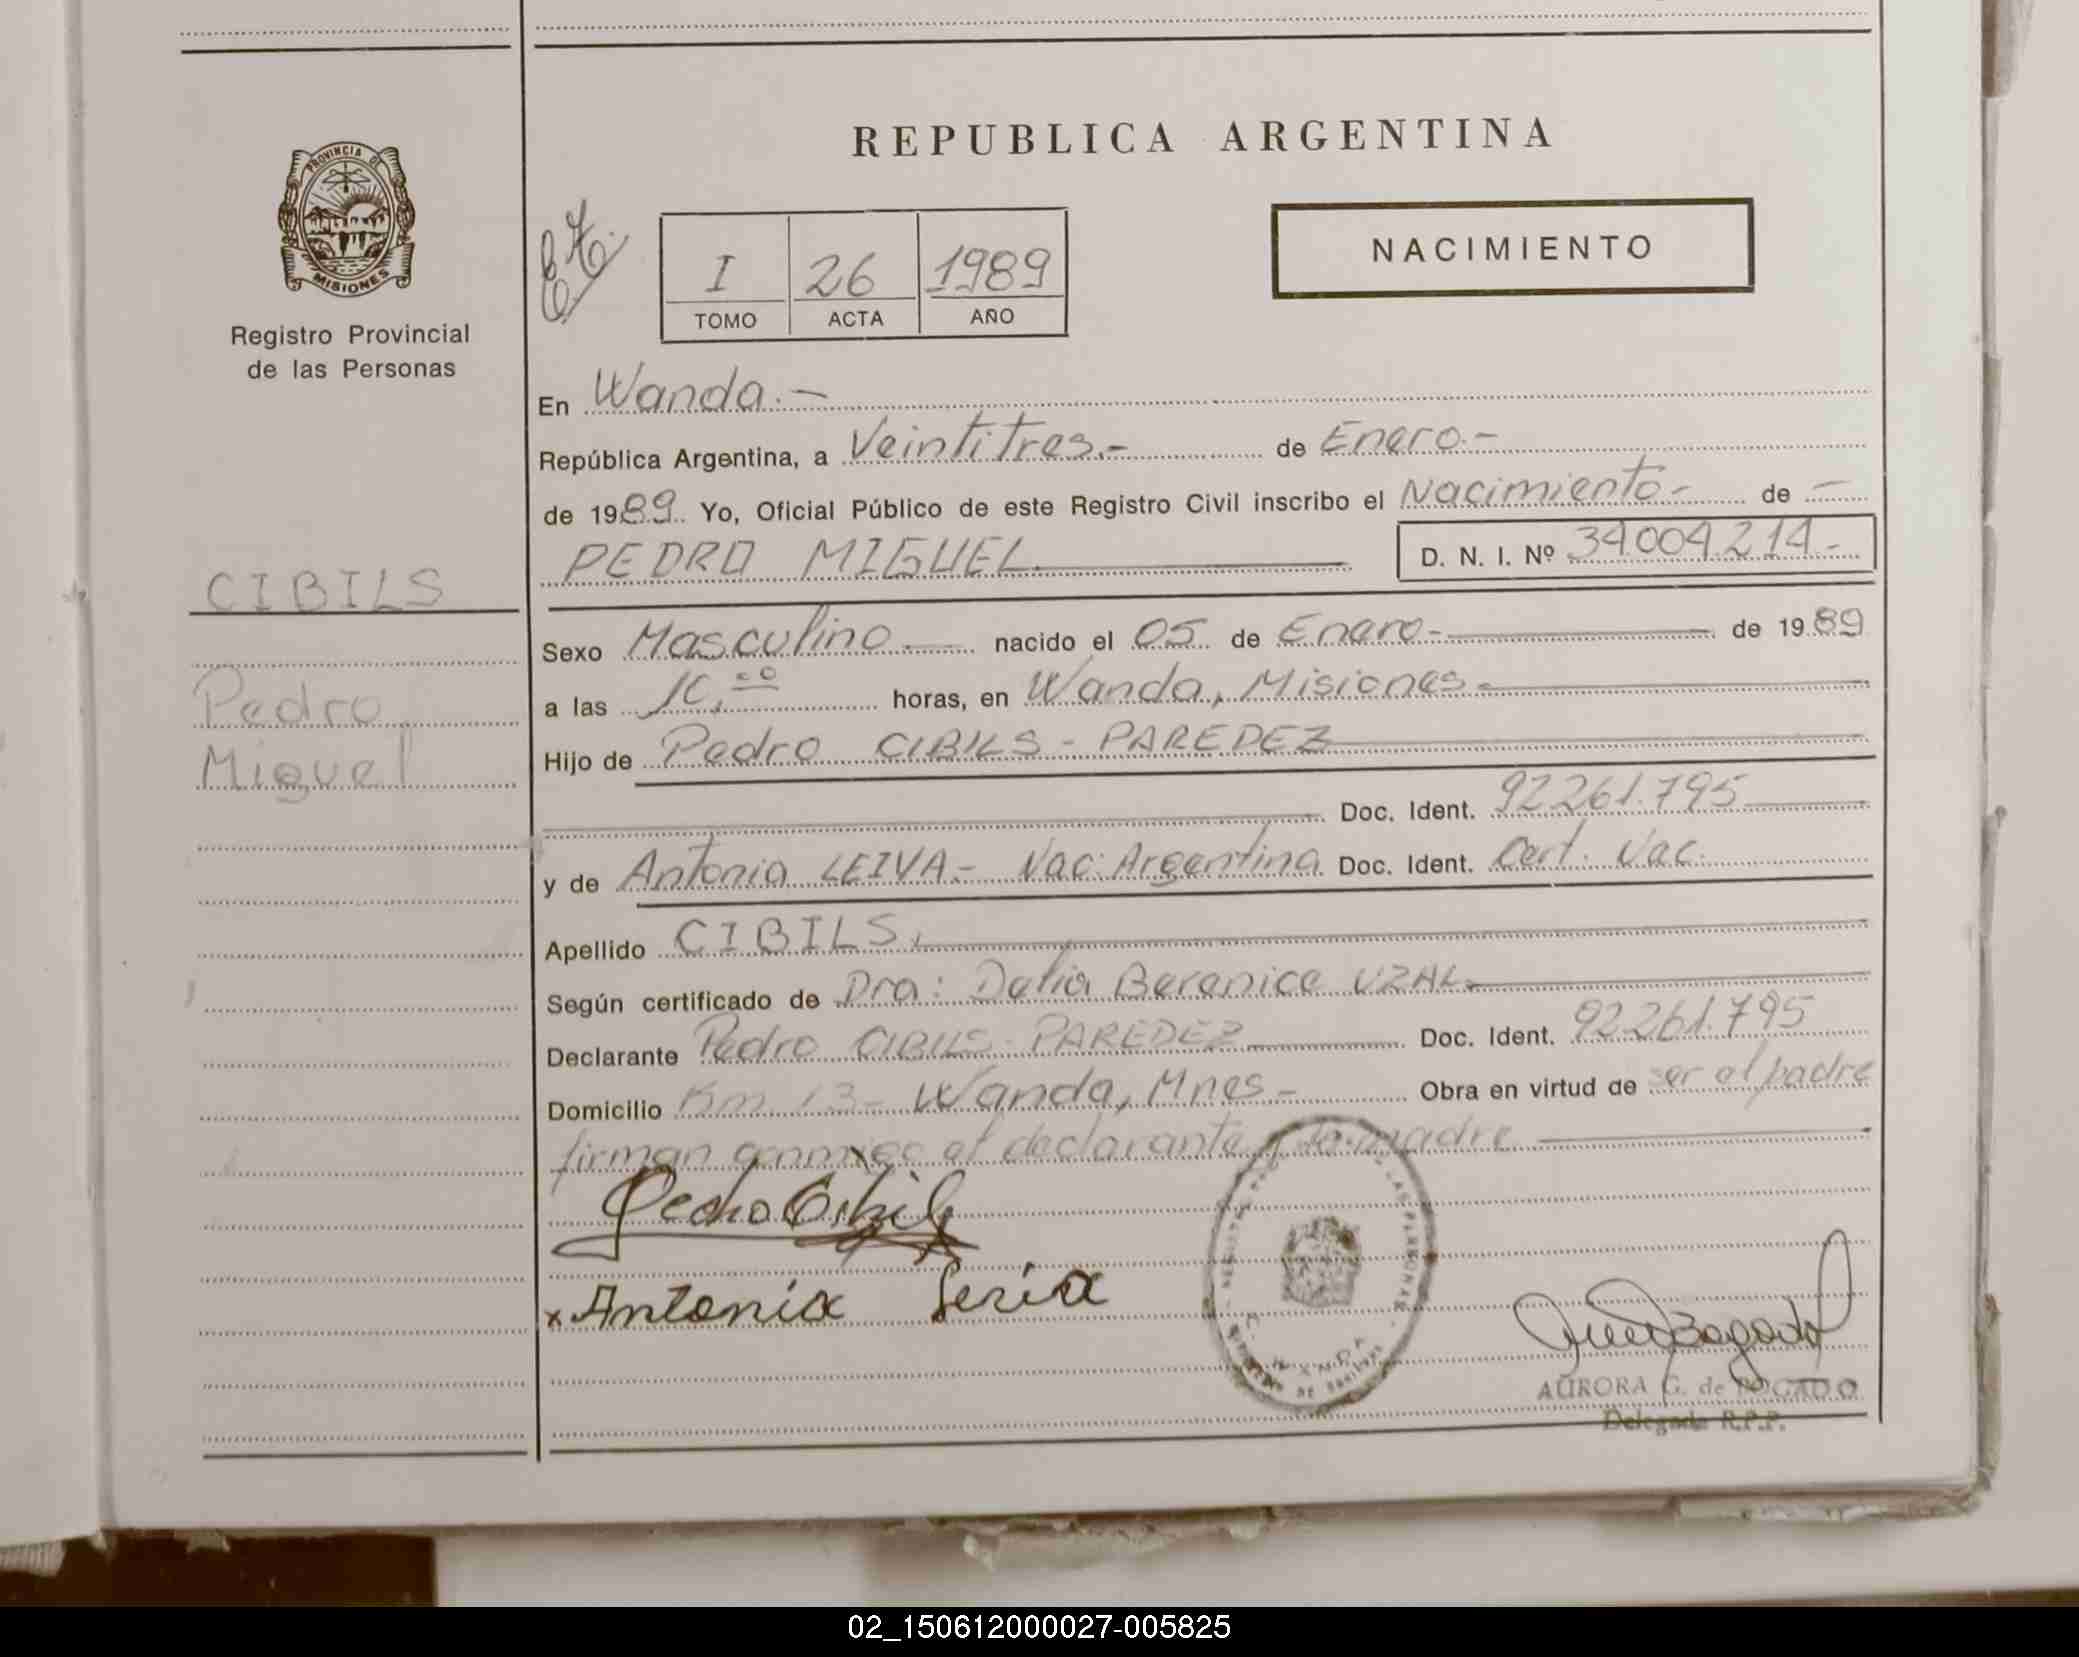 REPUBLICA ARGENTINA
PROVINCIA DE
MISIONES
Registro Provincial
de las Personas
I 26 1989
TOMO ACTA AÑO
NACIMIENTO
En Wanda.-
República Argentina, a Veintitres.- de Enero.-
de 1989. Yo, Oficial Público de este Registro Civil inscribo el Nacimiento- de -
PEDRO MIGUEL D. N. I. Nº 34.004.214-
CIBILS
Pedro
Miguel
Sexo Masculino nacido el 05 de Enero- de 1989
a las horas, en Wanda, Misiones-
Hijo de Pedro CIBILS - PAREDEZ
Doc. Ident. 92.261.795
y de Antonia LEIVA.- Nac: Argentina Doc. Ident. Cert. Nac.
Apellido CIBILS.
Según certificado de Dra: Delia Berenice UZAL.
Declarante Pedro CIBILS - PAREDEZ Doc. Ident. 92.261.795
Domicilio Km 13- Wanda, Mnes- Obra en virtud de ser el padre
firman conmigo el declarante y la madre
Pedro Cibils
x Antonia
WANDA
AURORA G. de BOGADO
Delegada R.P.P.
02_150612000027-005825